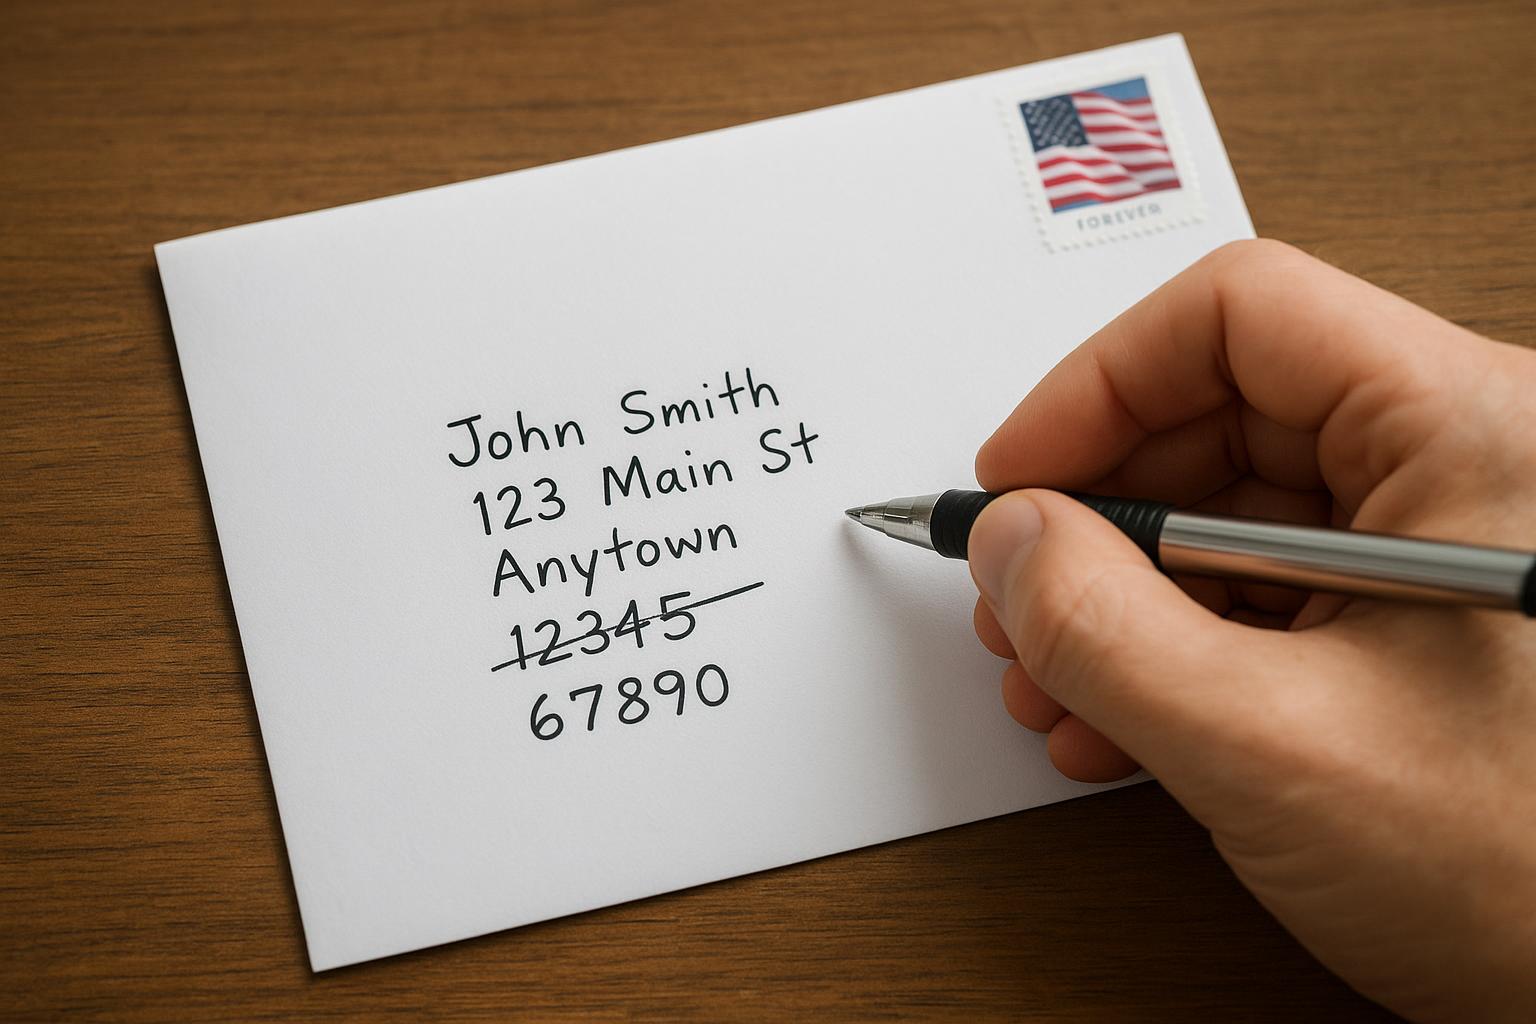 FOREVER
John Smith
123 Main St
Anytown
12345
67890